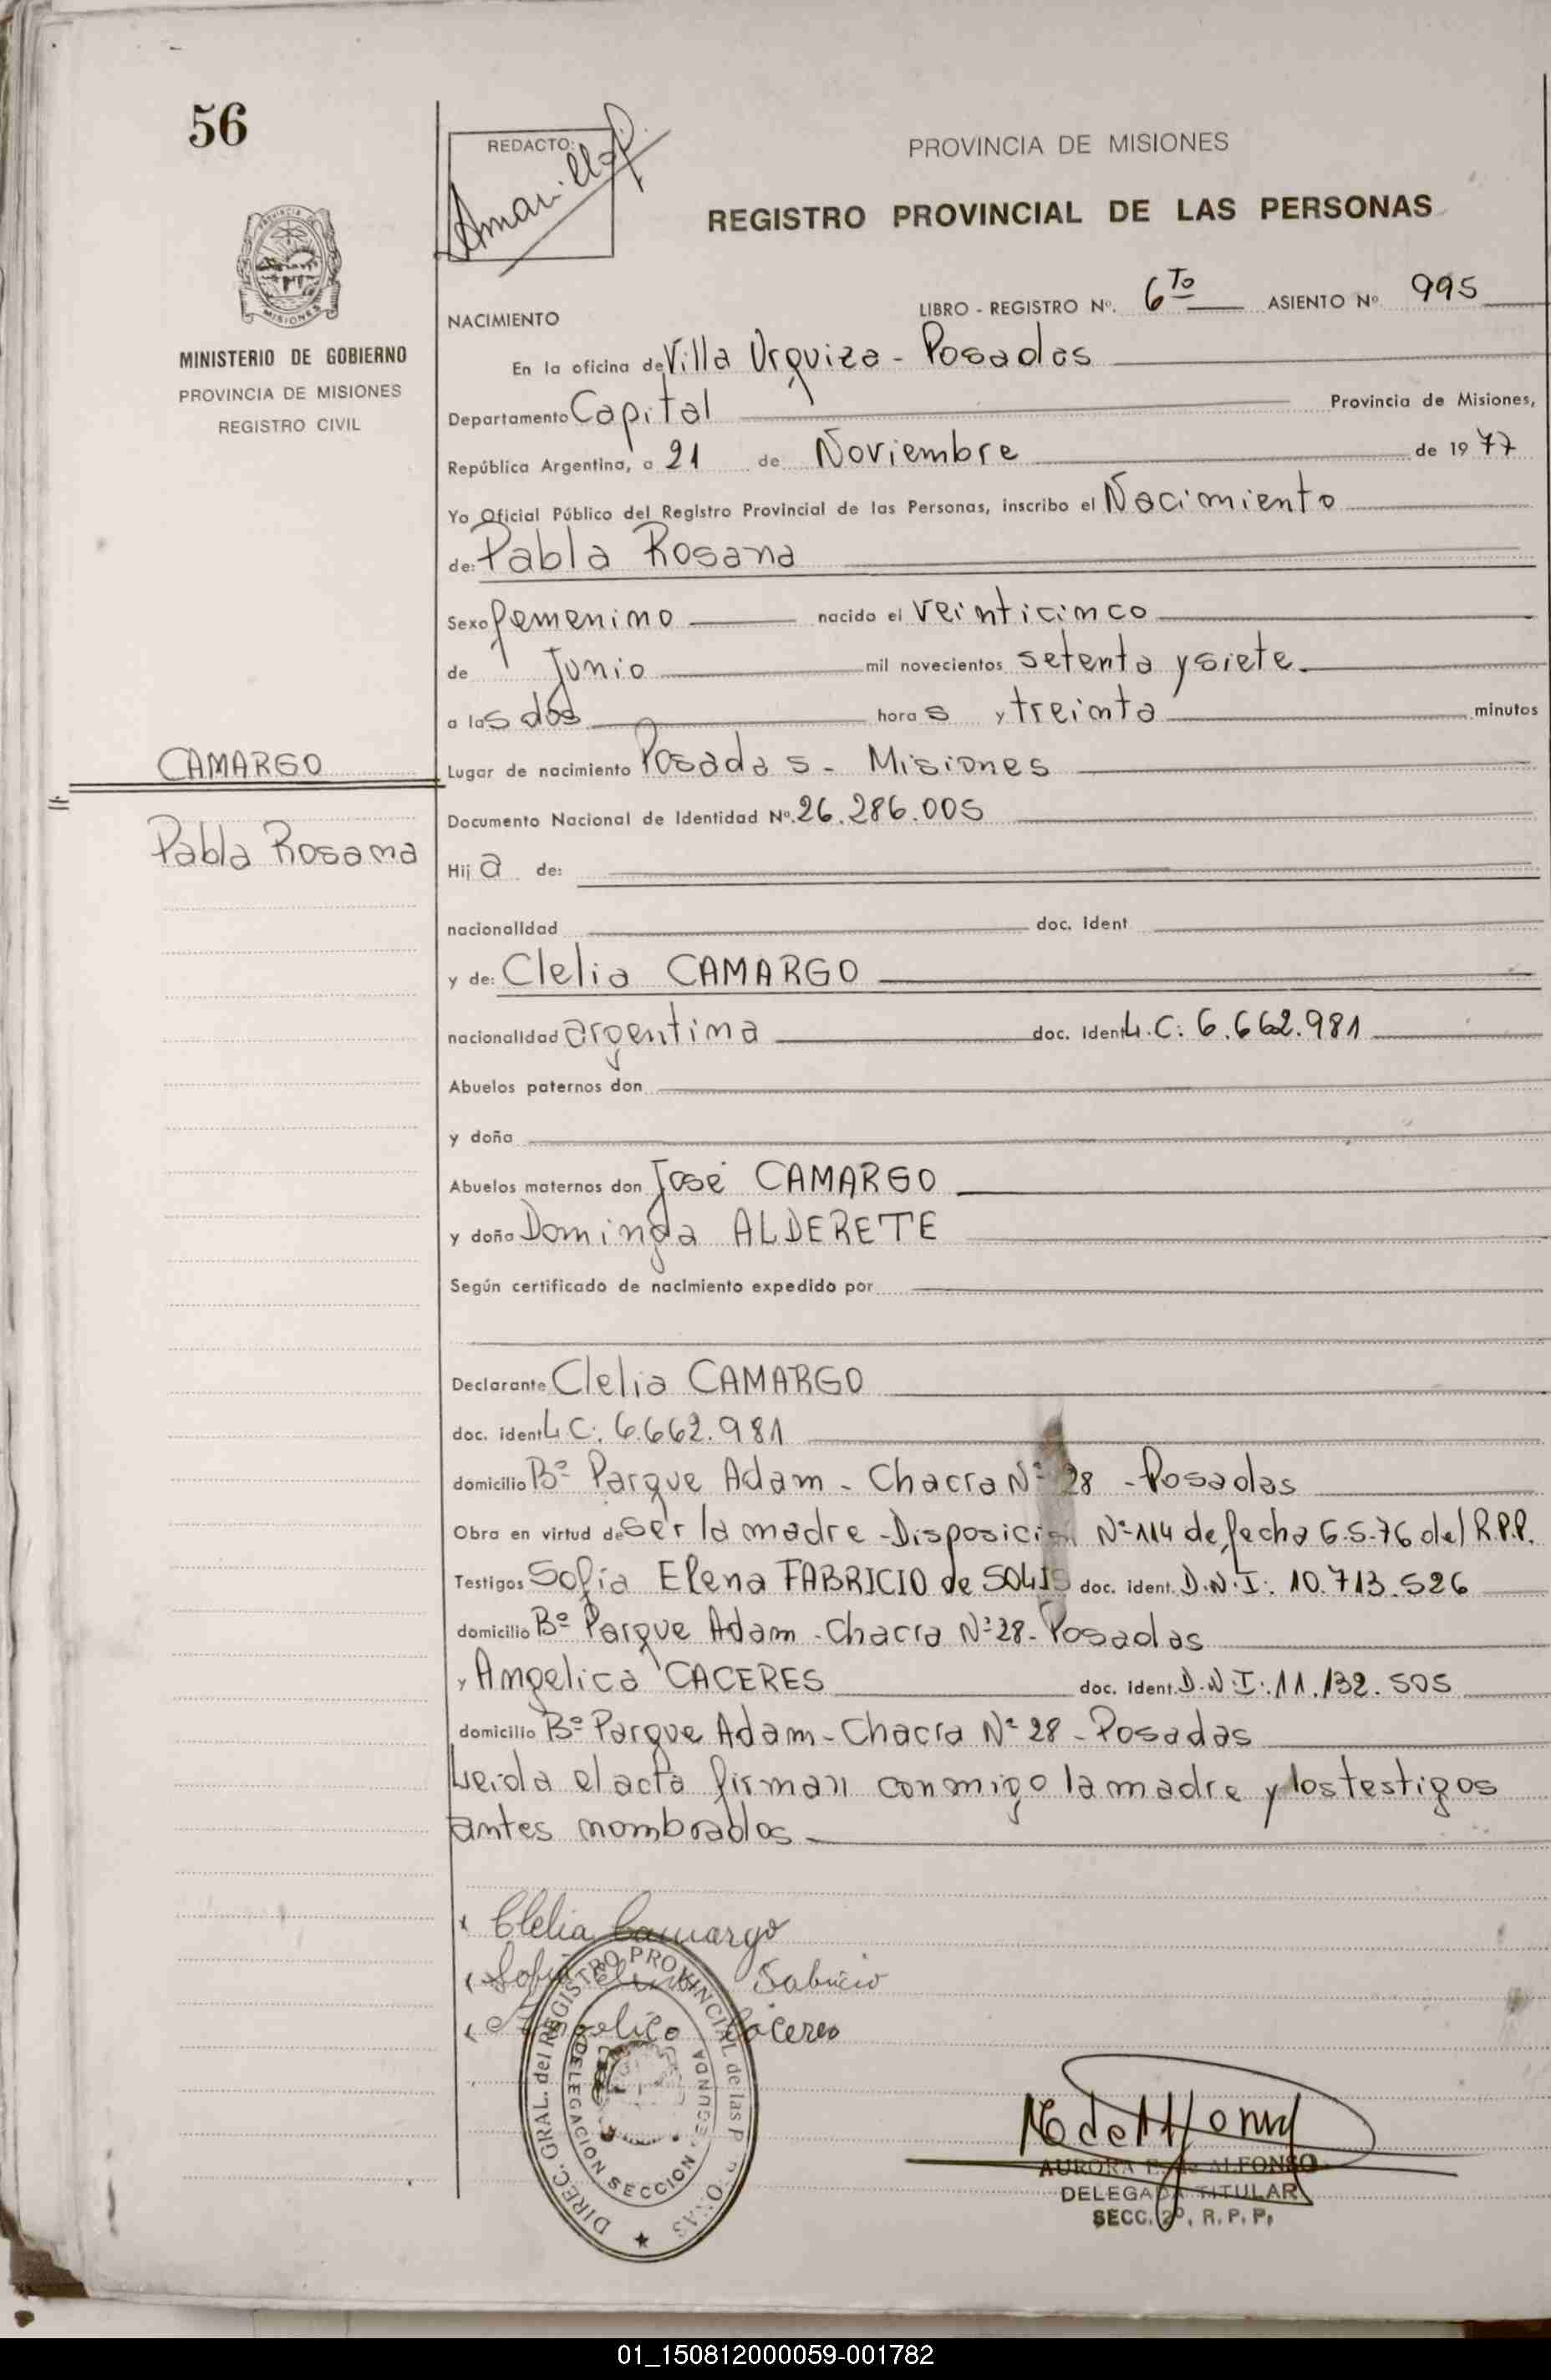 56
REDACTO:
Amarilla
PROVINCIA DE MISIONES
REGISTRO PROVINCIAL DE LAS PERSONAS
LIBRO - REGISTRO Nº. 6To ASIENTO Nº 995
MISIONES
MINISTERIO DE GOBIERNO
PROVINCIA DE MISIONES
REGISTRO CIVIL
NACIMIENTO
En la oficina de Villa Urquiza - Posadas
Departamento Capital Provincia de Misiones,
República Argentina, a 21 de Noviembre de 1977
Yo Oficial Público del Registro Provincial de las Personas, inscribo el Nacimiento
de: Pabla Rosana
Sexo femenino nacido el veinticinco
de Junio mil novecientos setenta y siete
a las dos horas y treinta minutos
CAMARGO
Pabla Rosana
Lugar de nacimiento Posadas - Misiones
Documento Nacional de Identidad Nº. 26.286.005
Hija de:
nacionalidad doc. ident
y de: Clelia CAMARGO
nacionalidad argentina doc. ident L.C: 6.662.981
Abuelos paternos don
y doña
Abuelos maternos don José CAMARGO
y doña Dominga ALDERETE
Según certificado de nacimiento expedido por
Declarante Clelia CAMARGO
doc. ident L.C: 6.662.981
domicilio Bº Parque Adam - Chacra Nº 28 - Posadas
Obra en virtud de ser la madre - Disposición Nº 114 de fecha 6-5-76 del R.P.P.
Testigos Sofia Elena FABRICIO de SOLIS doc. ident. D.N.I: 10.713.526
domicilio Bº Parque Adam - Chacra Nº 28 - Posadas
y Angelica CACERES doc. ident. D.N.I: 11.132.505
domicilio Bº Parque Adam - Chacra Nº 28 - Posadas
Leida el acta firman conmigo la madre y los testigos
antes nombrados
Clelia Camargo
Sofia Elena Fabricio
Angelica Cáceres
DIREC. GRAL. del REGISTRO PROVINCIAL de las
DELEGACION SECCION SEGUNDA
AURORA de ALFONSO
DELEGADA TITULAR
SECC. 2º, R. P. P.
01_150812000059-001782